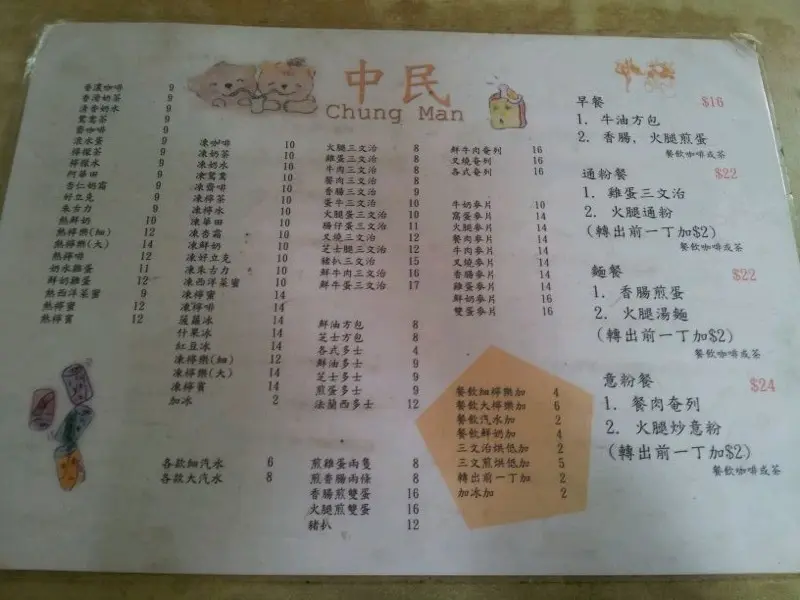 中民
Chung Man
香濃咖啡 9
香滑奶茶 9
清香奶水 9
鴛鴦茶 9
齋咖啡 9
滾水蛋 9
檸檬茶 9
檸檬水 9
阿華田 9
杏仁奶霜 9
好立克 9
朱古力 9
熱鮮奶 10
熱檸樂(細) 12
熱檸樂(大) 14
熱檸啡 12
奶水雞蛋 11
鮮奶雞蛋 12
熱西洋菜蜜 9
熱檸蜜 12
熱檸賓 12
凍咖啡 10
凍奶茶 10
凍奶水 10
凍鴛鴦 10
凍齋啡 10
凍檸茶 10
凍檸水 10
凍華田 10
凍杏霜 10
凍鮮奶 10
凍好立克 10
凍朱古力 10
凍西洋菜蜜 10
凍檸蜜 14
凍檸啡 14
菠蘿冰 14
什果冰 14
紅豆冰 14
凍檸樂(細) 12
凍檸樂(大) 14
凍檸賓 14
加冰 2
各款細汽水 6
各款大汽水 8
火腿三文治 8
雞蛋三文治 8
牛肉三文治 8
餐肉三文治 8
香腸三文治 9
蛋牛三文治 10
火腿蛋三文治 10
腸仔蛋三文治 11
叉燒三文治 12
芝士腿三文治 12
豬扒三文治 15
鮮牛肉三文治 16
鮮牛蛋三文治 17
鮮油方包 8
芝士方包 8
各式多士 4
鮮油多士 9
芝士多士 9
煎蛋多士 9
法蘭西多士 12
煎雞蛋兩隻 8
煎香腸兩條 8
香腸煎雙蛋 16
火腿煎雙蛋 16
豬扒 12
鮮牛肉奄列 16
叉燒奄列 16
各式奄列 16
牛奶麥片 10
窩蛋麥片 14
火腿麥片 14
餐肉麥片 14
牛肉麥片 14
叉燒麥片 14
香腸麥片 14
雞蛋麥片 14
鮮奶麥片 16
雙蛋麥片 16
餐飲細檸樂加 4
餐飲大檸樂加 6
餐飲汽水加 2
餐飲鮮奶加 4
三文治烘低加 2
三文煎烘低加 5
轉出前一丁加 2
加冰加 2
早餐 $16
1. 牛油方包
2. 香腸, 火腿煎蛋
餐飲咖啡或茶
通粉餐 $22
1. 雞蛋三文治
2. 火腿通粉
(轉出前一丁加$2)
餐飲咖啡或茶
麵餐 $22
1. 香腸煎蛋
2. 火腿湯麵
(轉出前一丁加$2)
餐飲咖啡或茶
意粉餐 $24
1. 餐肉奄列
2. 火腿炒意粉
(轉出前一丁加$2)
餐飲咖啡或茶